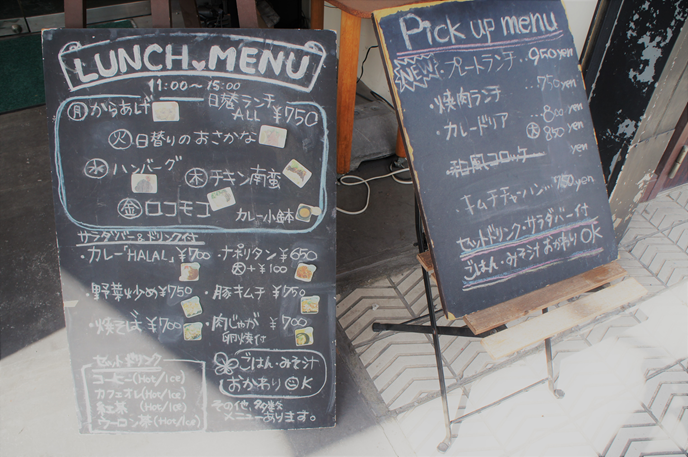 LUNCH♥MENU
11:00～15:00
㊊からあげ 日替ランチ ALL ¥750
㊋日替りのおさかな
㊌ハンバーグ ㊍チキン南蛮
㊎ロコモコ カレー小鉢
サラダバー&ドリンク付
・カレー「HALAL」¥700 ・ナポリタン¥650
㊅+¥100
・野菜炒め¥750 ・豚キムチ¥750
・焼そば¥700 ・肉じゃが ¥700
卵焼付
セットドリンク
コーヒー(Hot/Ice)
カフェオレ(Hot/Ice)
紅茶(Hot/Ice)
ウーロン茶(Hot/Ice)
ごはん・みそ汁
おかわりOK
その他、多数
メニューあります。
Pick up menu
NEW! プレートランチ‥950yen
・焼肉ランチ 750yen
・カレードリア 800yen
㊅850yen
・和風コロッケ
・キムチチャーハン…750yen
セットドリンク・サラダバー付
ごはん・みそ汁おかわりOK